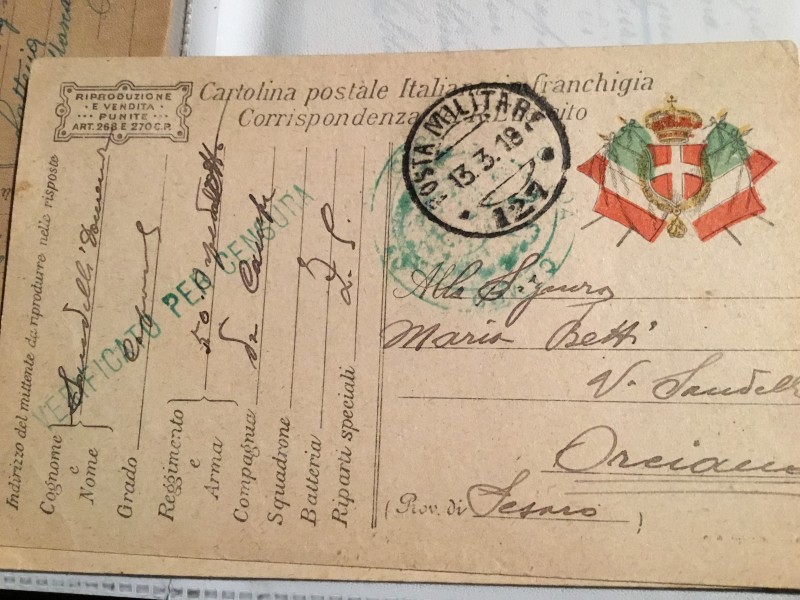 RIPRODUZIONE
E VENDITA
PUNITE
ART. 268 E 270 C.P.
Cartolina postale Italiana in franchigia
Corrispondenza Esercito
POSTA MILITARE
13.3.18
127
VERIFICATO PER CENSURA
Indirizzo del mittente da riprodurre nelle risposte
Cognome
e
Nome
Grado
Reggimento
e
Arma
50
Compagnia
Squadrone
Batteria
Riparti speciali
Alla Signora
Maria Betti
V. Sandelli
Orciano
(Prov. di Pesaro )